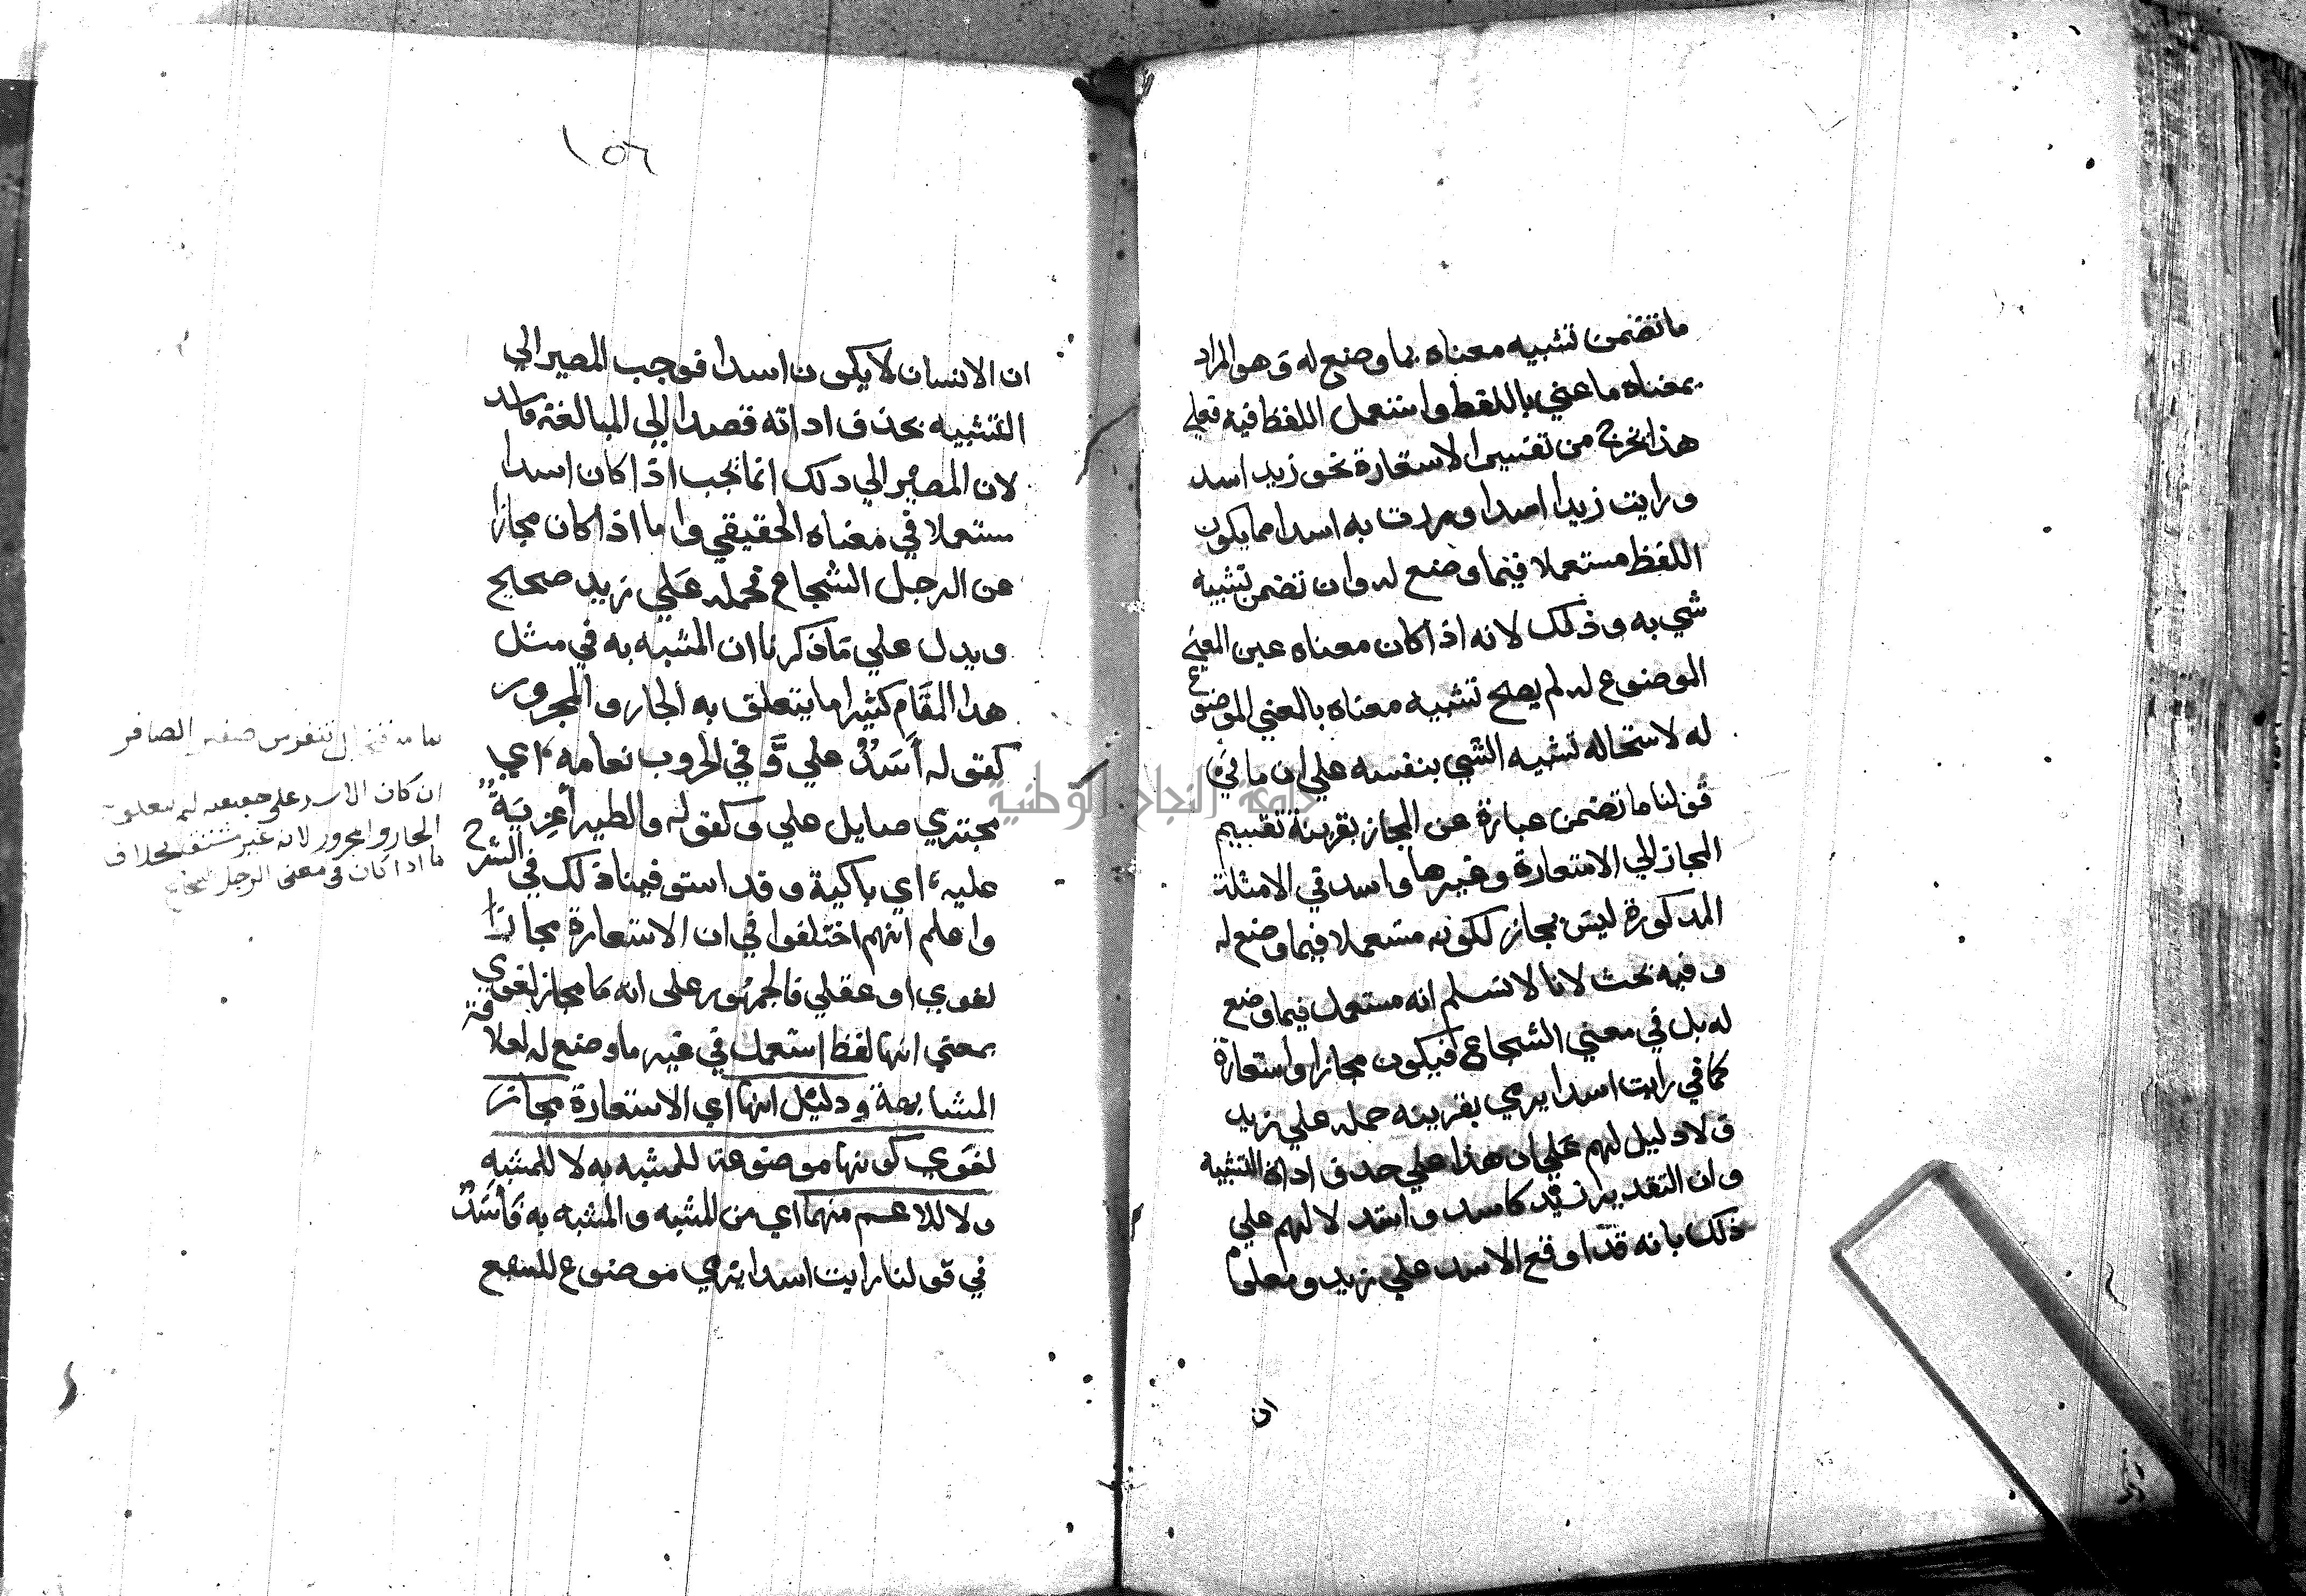 ما تضمن تشبيه معناه بما وضع له و هو المراد
بمعناه ما عني باللفظ واستعمل اللفظ فيه فعلي
هذا يخرج من تفسير الاستعارة نحو زيد اسد
و رايت زيدا اسدا و مررت به اسدا مما يكون
اللفظ مستعملا فيما وضع له وان تضمن تشبيه
شي به وذلك لانه اذا كان معناه عين المعني
الموضوع له لم يصح تشبيه معناه بالمعني الموضوع
له لاستحالة تشبيه الشي بنفسه علي ان ما في
قولنا ما تضمن عبارة عن المجاز بقرينة تقسيم
المجاز الي الاستعارة وغيرها واسد في الامثلة
المدكورة ليس بمجاز لكونه مستعملا فيما وضع له
و فيه بحث لانا لا نسلم انه مستعمل فيما وضع
له بل في معني الشجاع فيكون مجازا واستعارة
كما في رايت اسدا يرمي بقرينه حمله علي زيد
و لا دليل لهم علي ان هذا علي حدف اداة التشبيه
و ان التقدير زيد كاسد و استدلالهم علي
ذلك بانه قد اوقع الاسد علي زيد ومعلوم
ان
١٥٦
ان الانسان لا يكون اسدا فوجب المصير الي
التشبيه بحذف اداته قصدا الي المبالغة فاسد
لان المصير الي دلك انما يجب اذا كان اسدا
مستعملا في معناه الحقيقي واما اذا كان مجازا
عن الرجل الشجاع فحمله علي زيد صحيح
ويدل علي ما ذكرنا ان المشبه به في مثل
هدا المقام كثيرا ما يتعلق به الجار و المجرور
كقوله أَسَدٌ علي وَّ في الحروب نعامه، اي
مجتري صايل علي و كقوله والطير أَغرِبَةٌ
عليه، اي باكية و قد استوفينا ذلك في الشرح
واعلم انهم اختلفوا في ان الاستعارة مجاز
لغوي او عقلي فالجمهور على انه مَا مجاز لغوي
بمعني انها لفظ استعمل في غير ما وضع له لعلاقة
المشابهة ودليل انها اي الاستعارة مجاز
لغوي كونها موضوعة للمشبه به لا للمشبه
ولا للاعم منهما اي من المشبه والمشبه به فَأَسَدٌ
في قولنا رايت اسدا يرمي موضوع للسبع
صفير الصافر
ان كان الاسد علي حقيقته لم يتعلق به
الجار والمجرور لانه غير مشتق بخلاف
ما اذا كان في معنى الرجل الشجاع
جامعة النجاح الوطنية